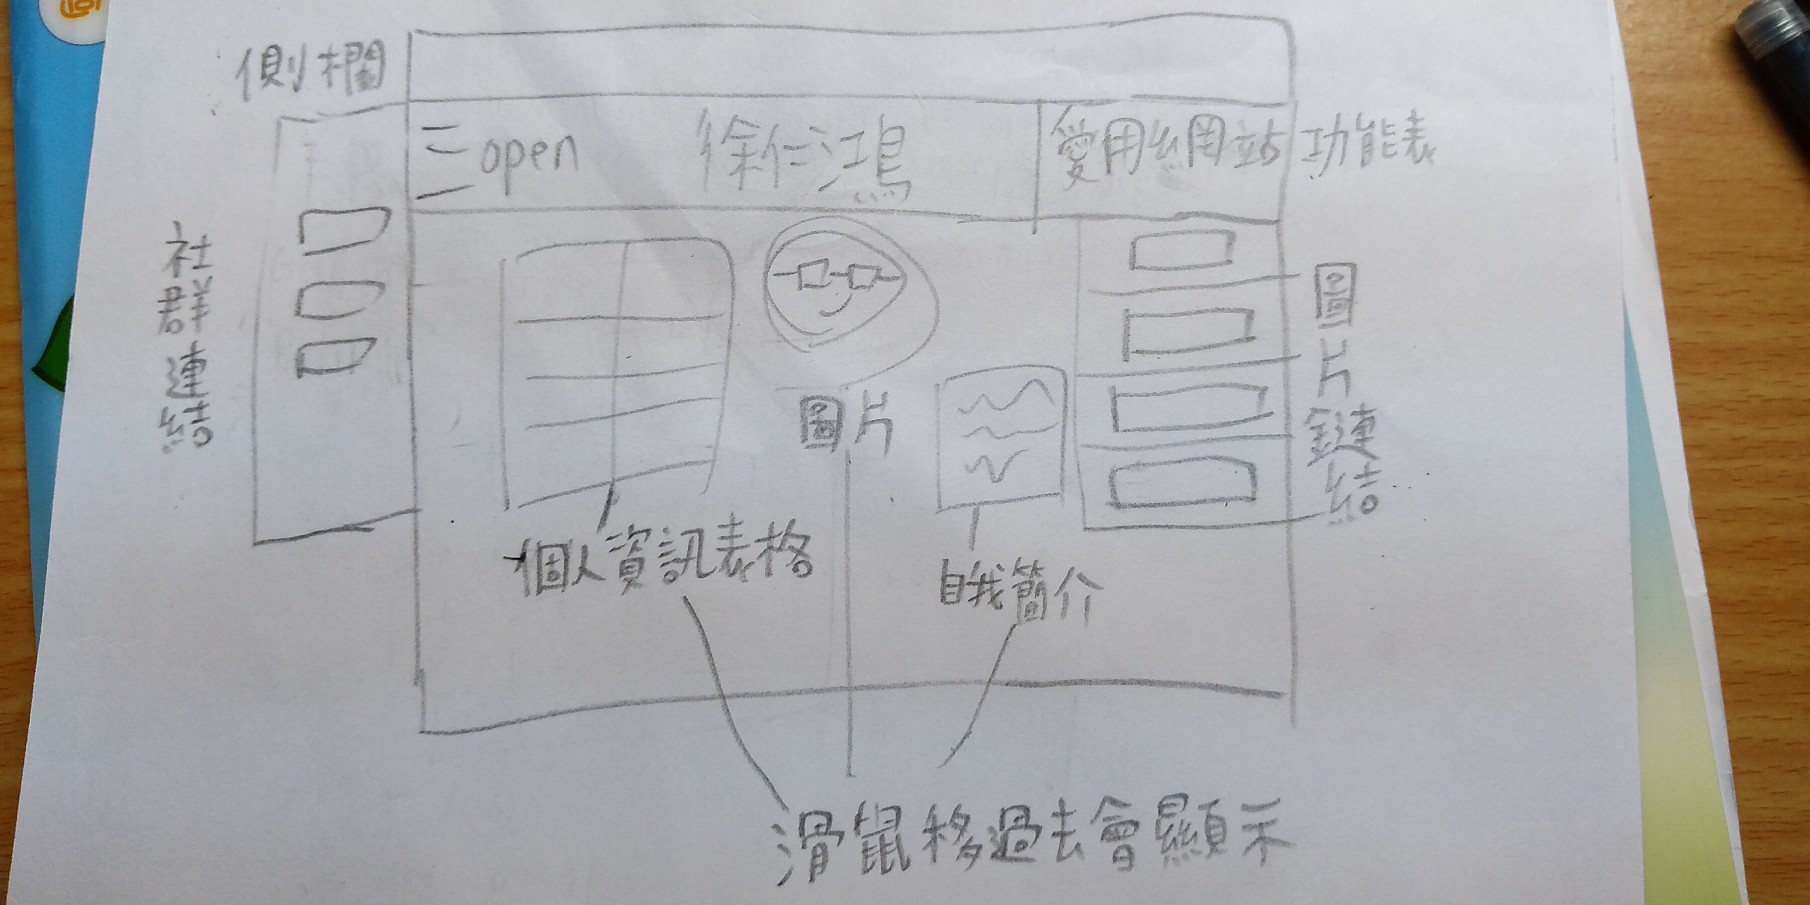 側欄
open
徐仁鴻
愛用網站
功能表
社群媒體
圖片
圖片鏈結
個人資訊表格
自我簡介
滑鼠移過去會顯示